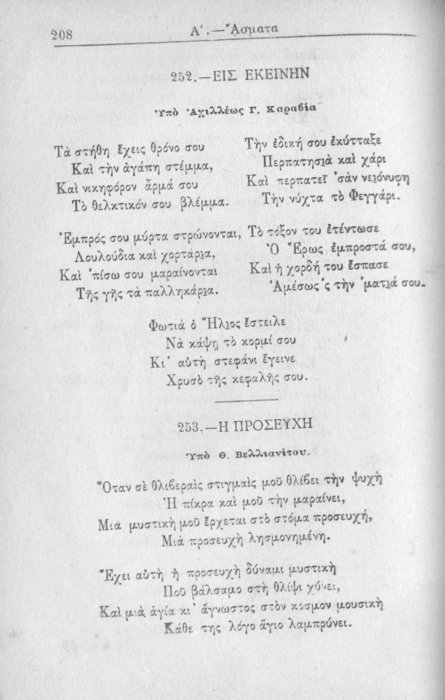 208
Α΄.—ᾌσματα
252.—ΕΙΣ ΕΚΕΙΝΗΝ
Ὑπὸ Ἀχιλλέως Γ. Καραβία
Τὰ στήθη ἔχεις θρόνο σου
Καὶ τὴν ἀγάπη στέμμα,
Καὶ νικηφόρον ἅρμά σου
Τὸ θελκτικόν σου βλέμμα.
Ἐμπρός σου μύρτα στρώνονται,
Λουλούδια καὶ χορτάρια,
Καὶ ᾿πίσω σου μαραίνονται
Τῆς γῆς τὰ παλληκάρια.
Τὴν ἐδική σου ἐκύτταξε
Περπατησιὰ καὶ χάρι
Καὶ περπατεῖ ᾿σὰν νειόνυφη
Τὴν νύχτα τὸ Φεγγάρι.
Τὸ τόξον του ἐτέντωσε
Ὁ Ἔρως ἐμπροστά σου,
Καὶ ἡ χορδή του ἔσπασε
Ἀμέσως ᾿ς τὴν ᾿ματιά σου.
Φωτιὰ ὁ Ἥλιος ἔστειλε
Νὰ κάψῃ τὸ κορμί σου
Κι᾿ αὐτὴ στεφάνι ἔγεινε
Χρυσὸ τῆς κεφαλῆς σου.
253.—Η ΠΡΟΣΕΥΧΗ
Ὑπὸ Θ. Βελλιανίτου.
Ὅταν σὲ θλιβεραὶς στιγμαὶς μοῦ θλίβει τὴν ψυχὴ
Ἡ πίκρα καὶ μοῦ τὴν μαραίνει,
Μιὰ μυστικὴ μοῦ ἔρχεται στὸ στόμα προσευχή,
Μιὰ προσευχὴ λησμονημένη.
Ἔχει αὐτὴ ἡ προσευχὴ δύναμι μυστικὴ
Ποῦ βάλσαμο στὴ θλίψι χύνει,
Καὶ μιὰ ἁγία κι᾿ ἄγνωστος στὸν κόσμον μουσικὴ
Κάθε της λόγο ἅγιο λαμπρύνει.